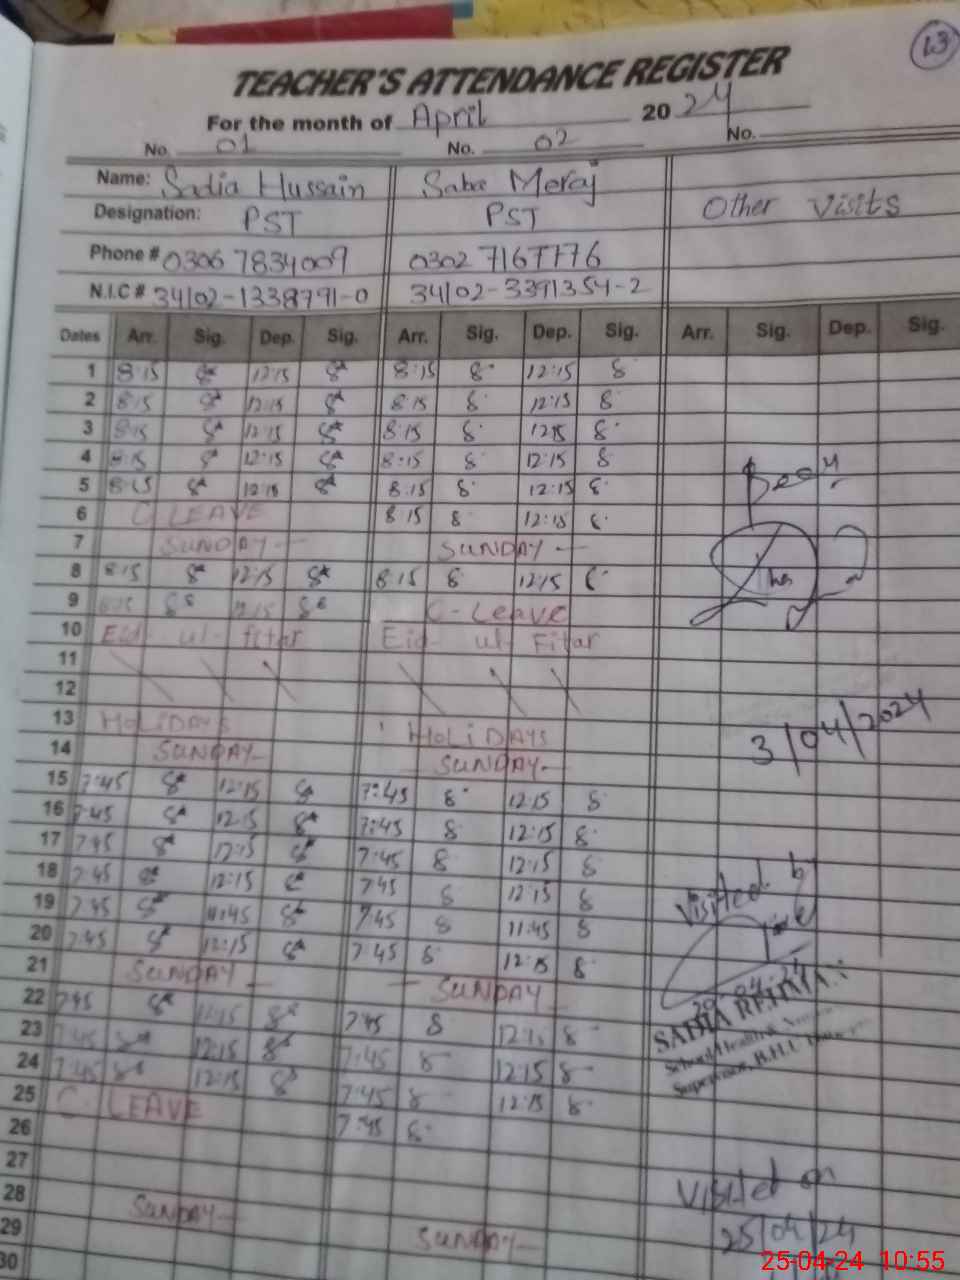 13
TEACHER'S ATTENDANCE REGISTER
For the month of April 2024
No. 01 No. 02 No.
Name: Sadia Hussain Saba Meraj
Designation: PST PST Other Visits
Phone # 0306 7834009 0302 7167776
N.I.C # 34102-1338791-0 34102-3391354-2
Dates Arr. Sig. Dep. Sig. Arr. Sig. Dep. Sig. Arr. Sig. Dep. Sig.
1 8:15 12:15 8:15 12:15
2 8:15 12:15 8:15 12:15
3 8:15 12:15 8:15 12:15
4 8:15 12:15 8:15 12:15
5 8:15 12:15 8:15 12:15
6 C LEAVE 8:15 12:15
7 SUNDAY SUNDAY
8 8:15 12:15 8:15 12:15
9 8:15 12:15 C-Leave
10 Eid-ul-fitar Eid-ul-Fitar
11
12
13 HOLIDAYS HOLIDAYS
14 SUNDAY SUNDAY
3/04/2024
15 7:45 12:15 7:45 12:15
16 7:45 12:15 7:45 12:15
17 7:45 12:15 7:45 12:15
18 7:45 12:15 7:45 12:15
19 7:45 11:45 7:45 11:45
Visited by
20 7:45 12:15 7:45 12:15
21 SUNDAY SUNDAY
22 7:45 12:15 7:45 12:15
SADIA
23 7:45 12:15 7:45 12:15
School Health &
24 7:45 12:15 7:45 12:15
Supervisor, B.H.U
25 C. LEAVE 7:45
26
27
28 SUNDAY SUNDAY
Visited on
29
25/04/24
30
25-04-24 10:55